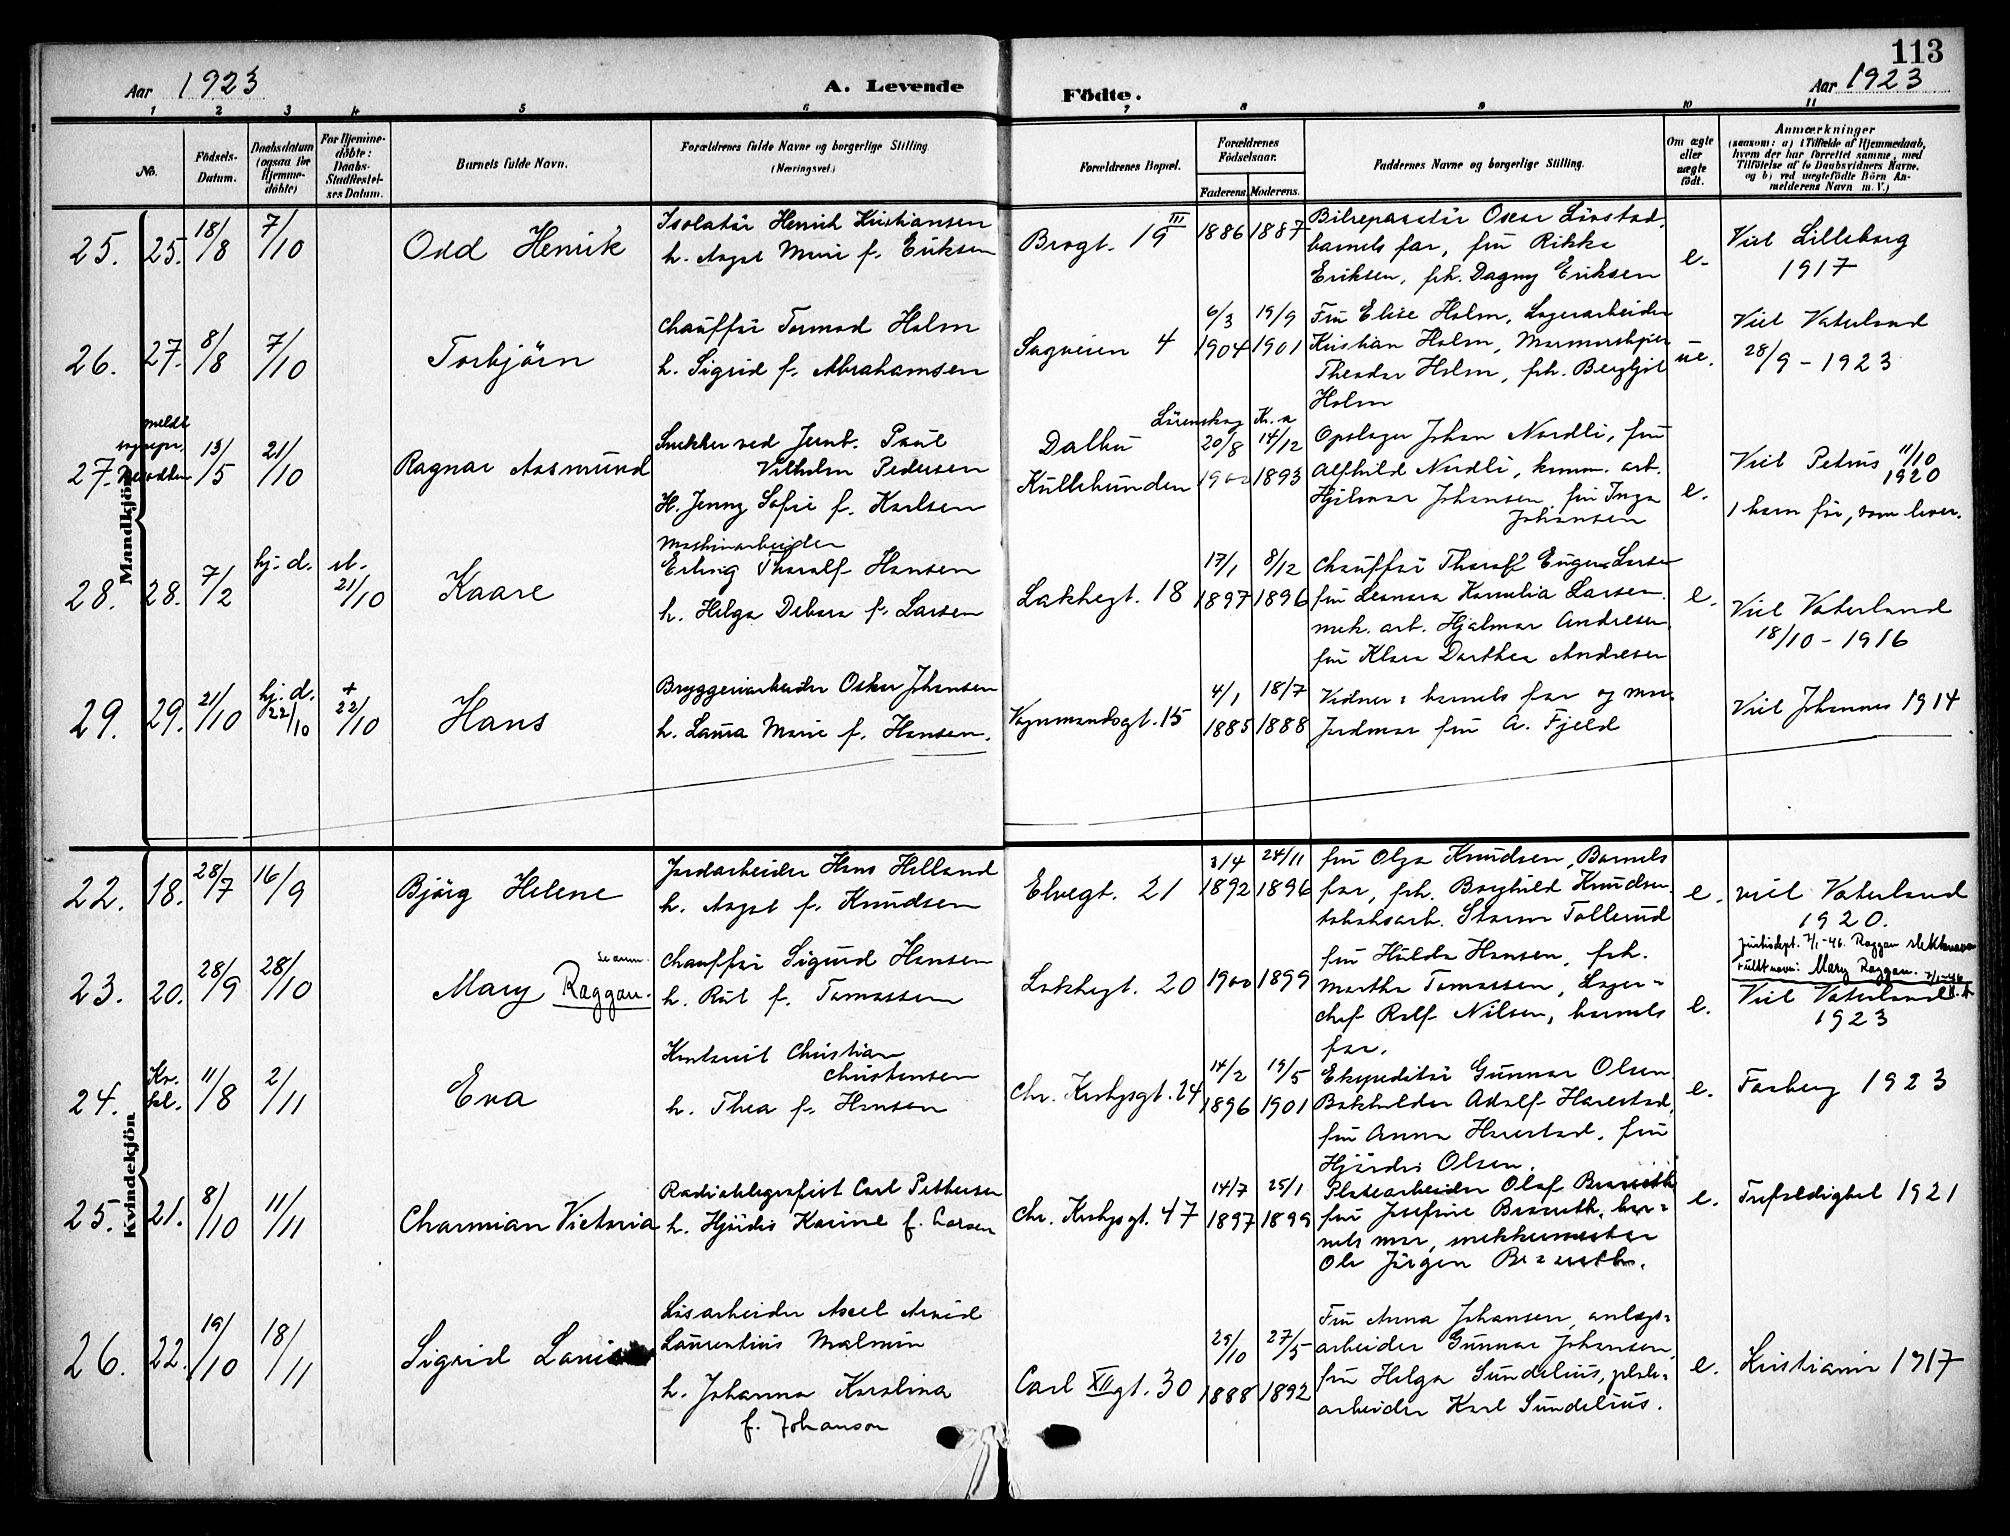 113
Aar 1923
A. Levende
Födte.
Aar 1923
1 2 3 4 5 6 7 8 9 10 11
No.
Födsels-
Datum.
Daabsdatum
(ogsaa for
Hjemme-
döbte)
For Hjemme-
döbte:
Daabs-
Stadfæstel-
ses Datum.
Barnets fulde Navn.
Forældrenes fulde Navne og borgerlige Stilling.
(Næringsvei.)
Forældrenes Bopæl.
Forældrenes
Födselsaar.
Faderens. Moderens.
Faddernes Navne og borgerlige Stilling.
Om ægte
eller
uægte
födt.
Anmærkninger
(saasom: a) i Tilfælde af Hjemmedaab,
hvem der har forrettet samme, med
Tilföielse af to Daabsvidners Navne,
og b) ved uægtefödte Börn An-
melderens Navn m. V.)
Mandkjön
25. 25. 18/8 7/10
Odd Henrik
Isolatör Henrik Kristiansen
h. Aagot Marie f. Eriksen
Brogt. 19 III
1886 1887
Bilreparatör Oscar Lövstad,
barnets far, fru Rikke
Eriksen, frk. Dagny Eriksen
e.
Viet Lilleborg
1917
26. 27. 8/8 7/10
Torbjörn
Chaufför Tormod Holm
h. Sigrid f. Abrahamsen
Sagveien 4
6/3 19/9
1904 1901
Fru Elise Holm, Lagerarbeider
Kristian Holm,
Theodor Holm, frk. Bergljot
Holm
ue.
Viet Vaterland
28/9 - 1923
27. meldt
sognepr.
Nesodden
13/5 21/10
Ragnar Aasmund
Snekker ved Jernb. Paul
Vilhelm Pedersen
H. Jenny Sofie f. Karlsen
Dalheu
Kullebunden
Lörenskog Kr.a
20/8 14/12
1900 1893
Opslager Johan Nordli, fru
Alfhild Nordli, komm. arb.
Hjalmar Johansen, fru Inga
Johansen
e.
Viet Petrus 11/10
1920
1 barn för, som lever.
28. 28. 7/2 hj. d. st.
21/10
Kaare
Maskinarbeider
Erling Thoralf Hansen
h. Helga Debora f. Larsen
Lakkegt. 18
17/1 8/12
1897 1896
Chaufför Thoralf Eugen Larsen
fru Leonora Kornelia Larsen,
mek. arb. Hjalmar Andresen,
fru Klara Dorthea Andresen
e.
Viet Vaterland
18/10 - 1916
29. 29. 21/10 hj. d.
22/10
+
22/10
Hans
Bryggeriarbeider Oskar Johansen
h. Laura Marie f. Hansen.
Vognmandsgt. 15
4/1 18/7
1885 1888
Vidner: barnets far og mor.
Jordmor fru A. Fjeld
Viet Johannes 1914
Kvindekjön
22. 18. 28/7 16/9
Björg Helene
Jordarbeider Hans Helland
h. Aagot f. Knudsen
Elvegt. 21
3/4 24/11
1892 1896
fru Olga Knudsen, Barnets
far, frk. Borghild Knudsen,
tobaksarb. Storm Tollerud
e.
viet Vaterland
1920.
23. 20. 28/9 28/10
se anm.
Mary Raggan.
Chaufför Sigurd Hansen
h. Rut f. Tomassen
Lakkegt. 20
1900 1899
fru Hulda Hansen, frk.
Martha Tomassen, Lager-
chef Rolf Nilsen, barnets
far.
e.
Justisdept. 2/1-46. Raggan slektsnavn
Fullt navn: Mary Raggan.
Viet Vaterland
1923
24. Kv.
kl.
11/8 2/11
Eva
Kontorist Christian
Christensen
h. Thea f. Hansen
Chr. Krohgsgt. 24
14/2 19/5
1896 1901
Ekspeditör Gunnar Olsen
Bokholder Adolf Harestad,
fru Anna Harestad, fru
Hjördis Olsen.
e.
Fagerborg 1923
25. 21. 8/10 11/11
Charmian Victoria
Radiotelegrafist Carl Pettersen
h. Hjördis Karine f. Larsen
Chr. Krohgsgt. 47
14/7 25/1
1897 1899
Platearbeider Olaf
fru Josefine bar-
nets mor, snekkermester
Ole Jörgen
e.
Trefoldighet 1921
26. 22. 19/10 18/11
Sigrid
Lösarbeider Axel Arvid
Laurentius Malmin
h. Johanna Karolina
f. Johanson
Carl XII gt. 30
29/10 27/5
1888 1892
Fru Anna Johansen, anlegs-
arbeider Gunnar Johansen,
fru Helga Sundelius, plate-
arbeider Karl Sundelius.
e.
Kristiania 1917